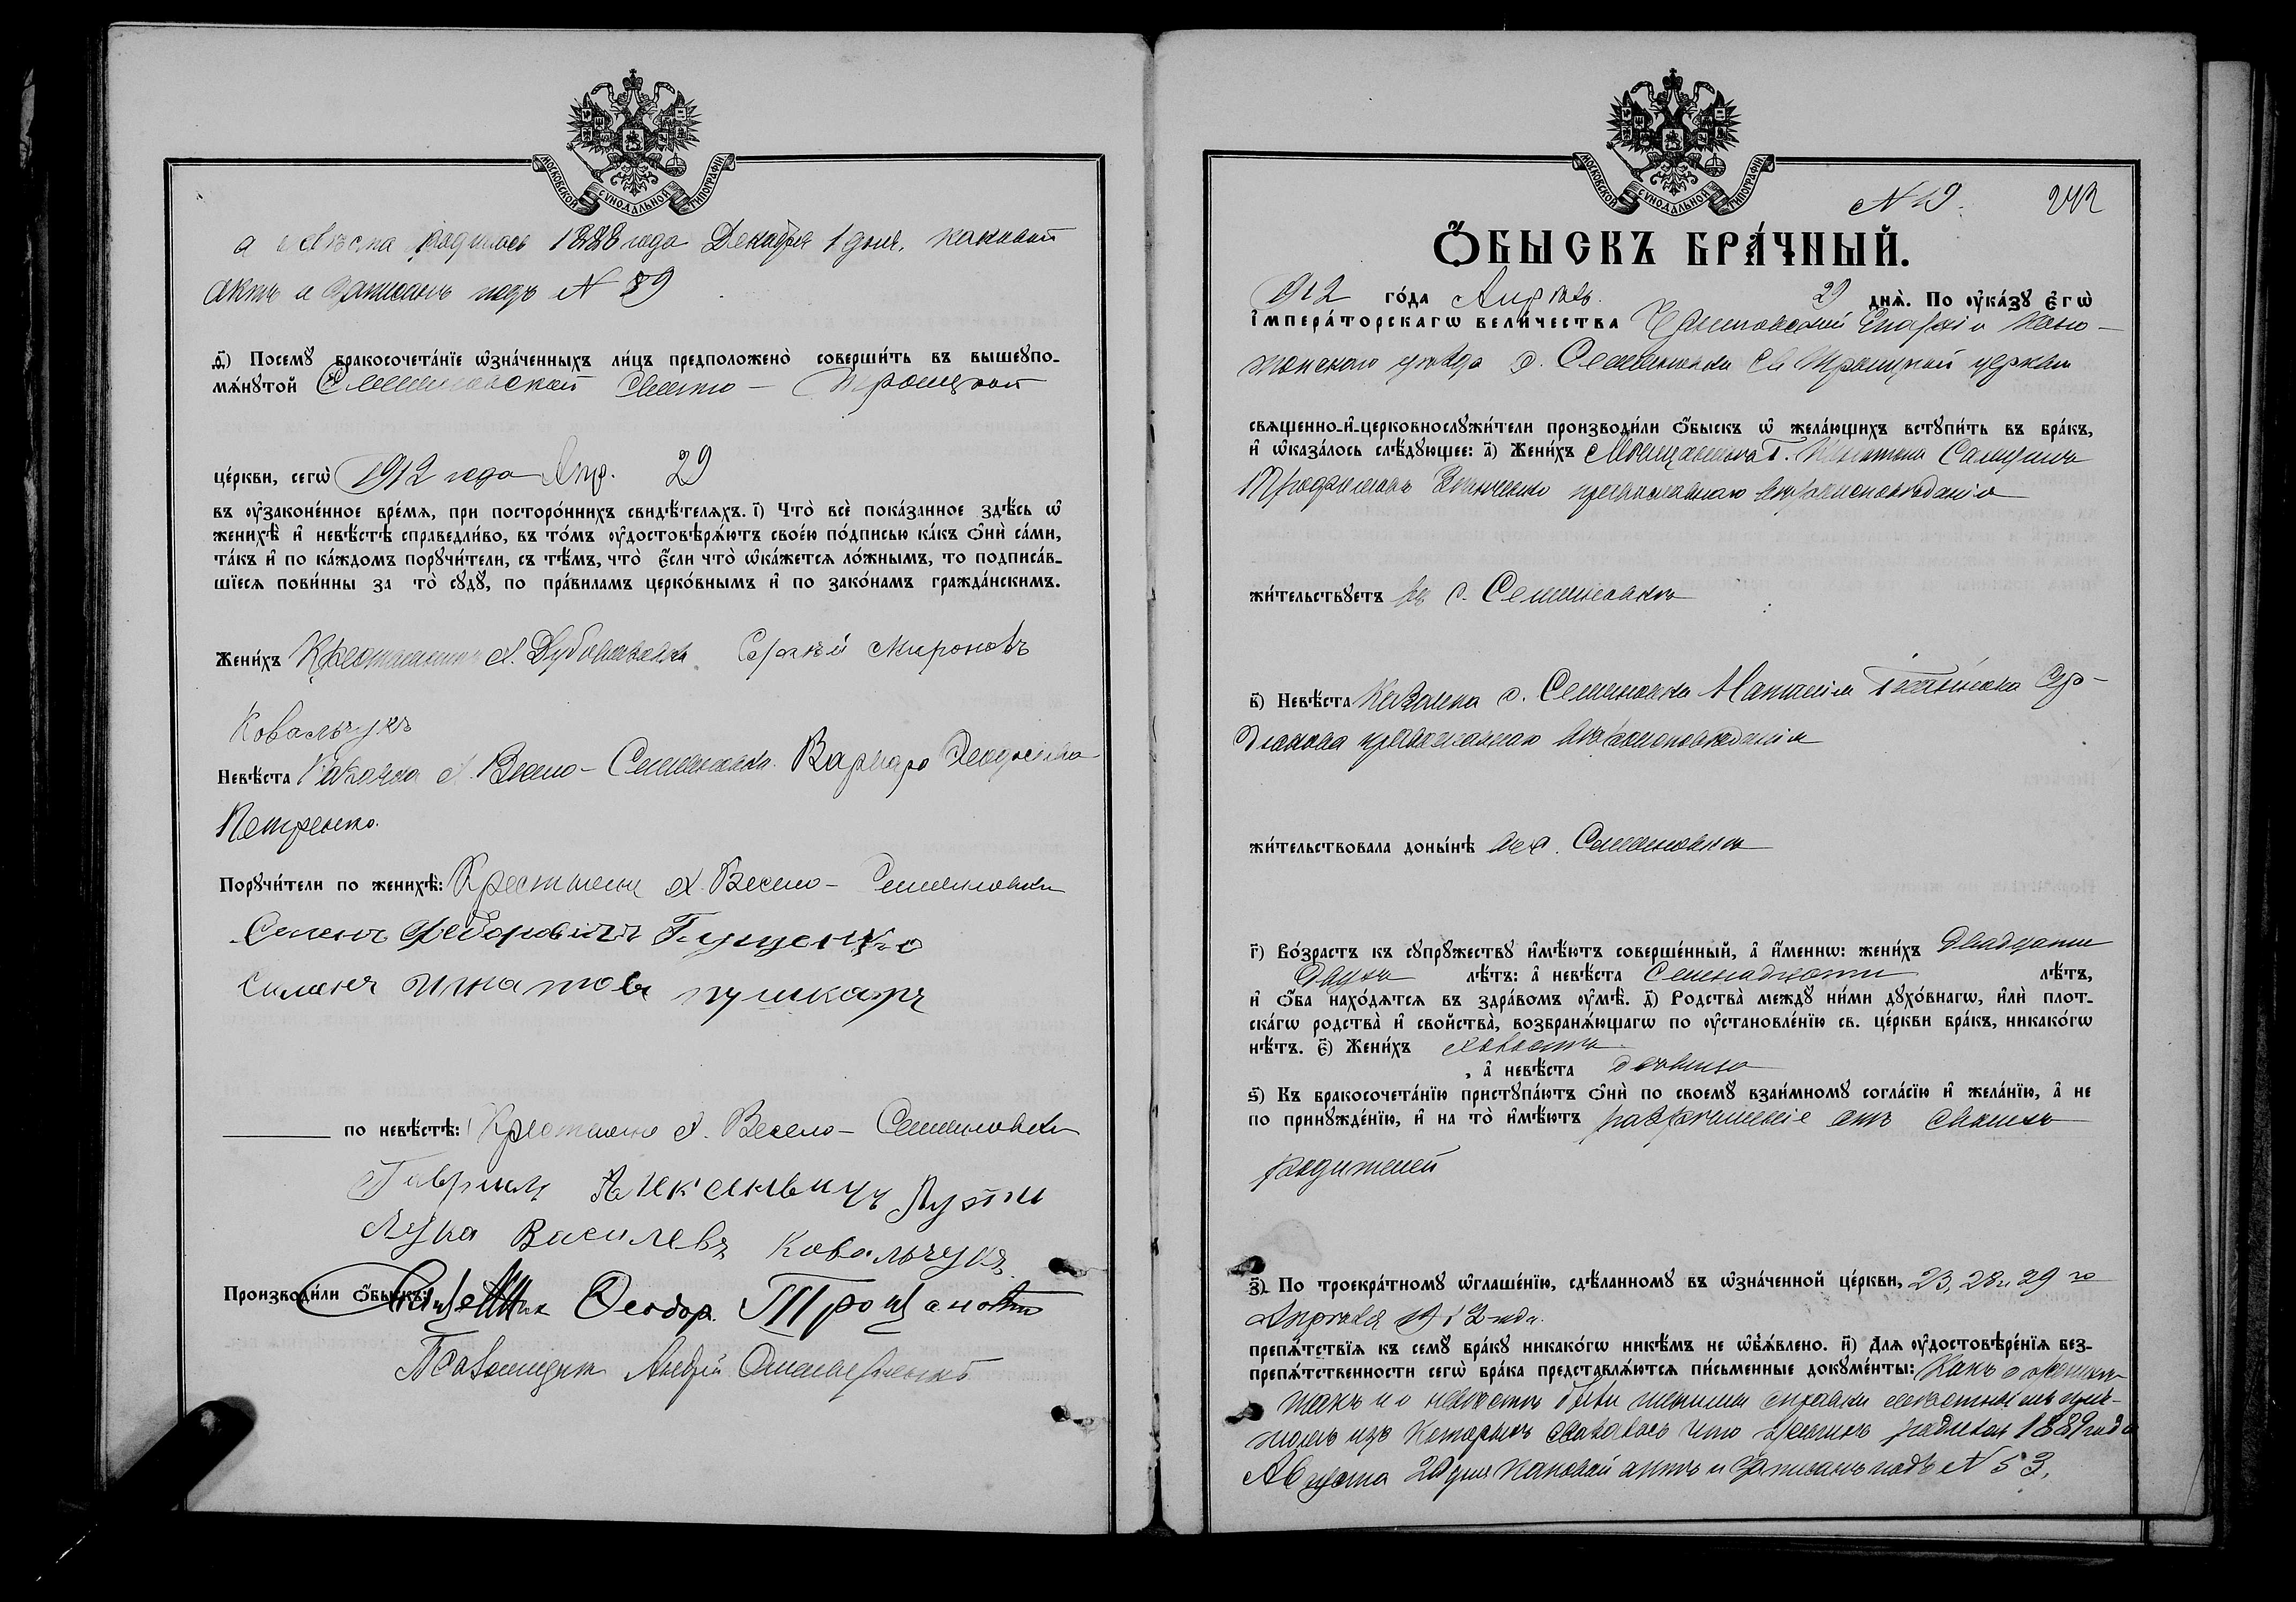 МОСКОВСКОЙ СѴНОДАЛЬНОЙ ТИПОГРАФІИ
а невѣста родилась 1888 года Декабря 1 дня, каковой
актъ и записанъ подъ № 89
ѳ҃) Посемꙋ бракосочета́нїе ѡ҆зна́ченныхъ ли́цъ предположено̀ соверши́ть въ вышеꙋпо-
мѧ́нꙋтой Семеновской Свято - Троицкой
це́ркви, сегѡ̀ 1912 года Апр. 29
въ ᲂу҆законе́нное вре́мѧ, при посторо́ннихъ свидѣ́телѧхъ. і҃) Что̀ всѐ пока́занное здѣ́сь ѡ҆
женихѣ̀ и҆ невѣ́стѣ справедли́во, въ то́мъ ᲂу҆достовѣрѧ́ютъ свое́ю по́дписью ка́къ ѻ҆нѝ са́ми,
та́къ и҆ по ка́ждомъ порꙋчи́тели, съ тѣ́мъ, что̀ є҆́сли что̀ ѡ҆ка́жется ло́жнымъ, то подписа́в-
шїесѧ пови́нны за то̀ сꙋдꙋ̀, по пра́виламъ церко́внымъ и҆ по зако́намъ гражда́нскимъ.
Жени́хъ Крестьянинъ х. Дубинавка Сергѣй Мироновъ
Ковальчукъ
Невѣ́ста Казачка х. Весело - Семеновки Варвара Феодосіева
Петренко.
Порꙋчи́тели по женихѣ̀: Крестьяне х. Весело - Семеновки
Семенъ Федоровичъ Гущенко
Симанъ Игнатовъ пушкаръ
по невѣ́стѣ: Крестьяне х. Весело - Семеновки
Гавриилъ
Лука Василевъ Ковальчукъ
Производи́ли ѻ҆́быскъ: Священникъ Феодоръ
Псаломщикъ Андрей
МОСКОВСКОЙ СѴНОДАЛЬНОЙ ТИПОГРАФІИ
№ 19. 242
Ѻ҆́БЫСКЪ БРА́ЧНЫЙ.
1912 го́да Апрѣль 29 днѧ̀. По ᲂу҆ка́зꙋ є҆гѡ̀
і҆мпера́торскагѡ вели́чества Черниговской Епархіи Коно-
топскаго уѣзда с. Семеновки Св Троицкой церкви
свѧщенно-и҆-церковнослꙋжи́тели производи́ли ѻ҆́быскъ ѡ҆ жела́ющихъ встꙋпи́ть въ бра́къ,
и҆ ѡ҆каза́лось слѣ́дꙋющее: а҃) Жени́хъ Мѣщанинъ г. Самуилъ
Трофимовъ православнаго вѣроисповѣданія
жи́тельствꙋетъ въ с. Семеновкѣ
в҃) Невѣ́ста Казачка с. Семеновки Наталія
православнаго вѣроисповѣданія
жи́тельствовала доны́нѣ въ с. Семеновкѣ
г҃) Во́зрастъ къ сꙋпрꙋ́жествꙋ и҆мѣ́ютъ соверше́нный, а҆ и҆́меннѡ: жени́хъ Двадцати
двухъ лѣ́тъ: а҆ невѣ́ста Семнадцати лѣ́тъ,
и҆ ѻ҆́ба нахо́дѧтсѧ въ здра́вомъ ᲂу҆мѣ̀. д҃) Родства̀ междꙋ̀ ни́ми дꙋхо́внагѡ, и҆лѝ плот-
ска́гѡ родства̀ и҆ сво́йства̀, возбранѧ́ющагѡ по ᲂу҆становле́нїю св. це́ркви бра́къ, никако́гѡ
нѣ́тъ. є҃) Жени́хъ холостъ
, а҆ невѣ́ста дѣвица
ѕ҃) Къ бракосочета́нїю пристꙋпа́ютъ ѻ҆нѝ по своемꙋ̀ взаи́мномꙋ согла́сїю и҆ жела́нїю, а҆ не
по принꙋжде́нїю, и҆ на то̀ и҆мѣ́ютъ разрѣшеніе отъ своихъ
родителей
з҃) По троекра́тномꙋ ѡ҆глаше́нїю, сдѣ́ланномꙋ въ ѡ҆зна́ченной це́ркви, 23, 28 и 29 го
Апрѣля 1912 года.
препѧ́тствїѧ къ семꙋ̀ бра́кꙋ никако́гѡ никѣ́мъ не ѡ҆б̾ѧ́влено. и҃) Для ᲂу҆достовѣре́нїѧ без-
препѧ́тственности сегѡ̀ бра́ка представлѧ́ютсѧ пи́сьменные докꙋме́нты: Какъ о женихѣ
такъ и о невѣстѣ были справки
изъ которыхъ оказалось что женихъ родился 1889 года
Августа 20 дня каковой актъ и записанъ подъ № 53,